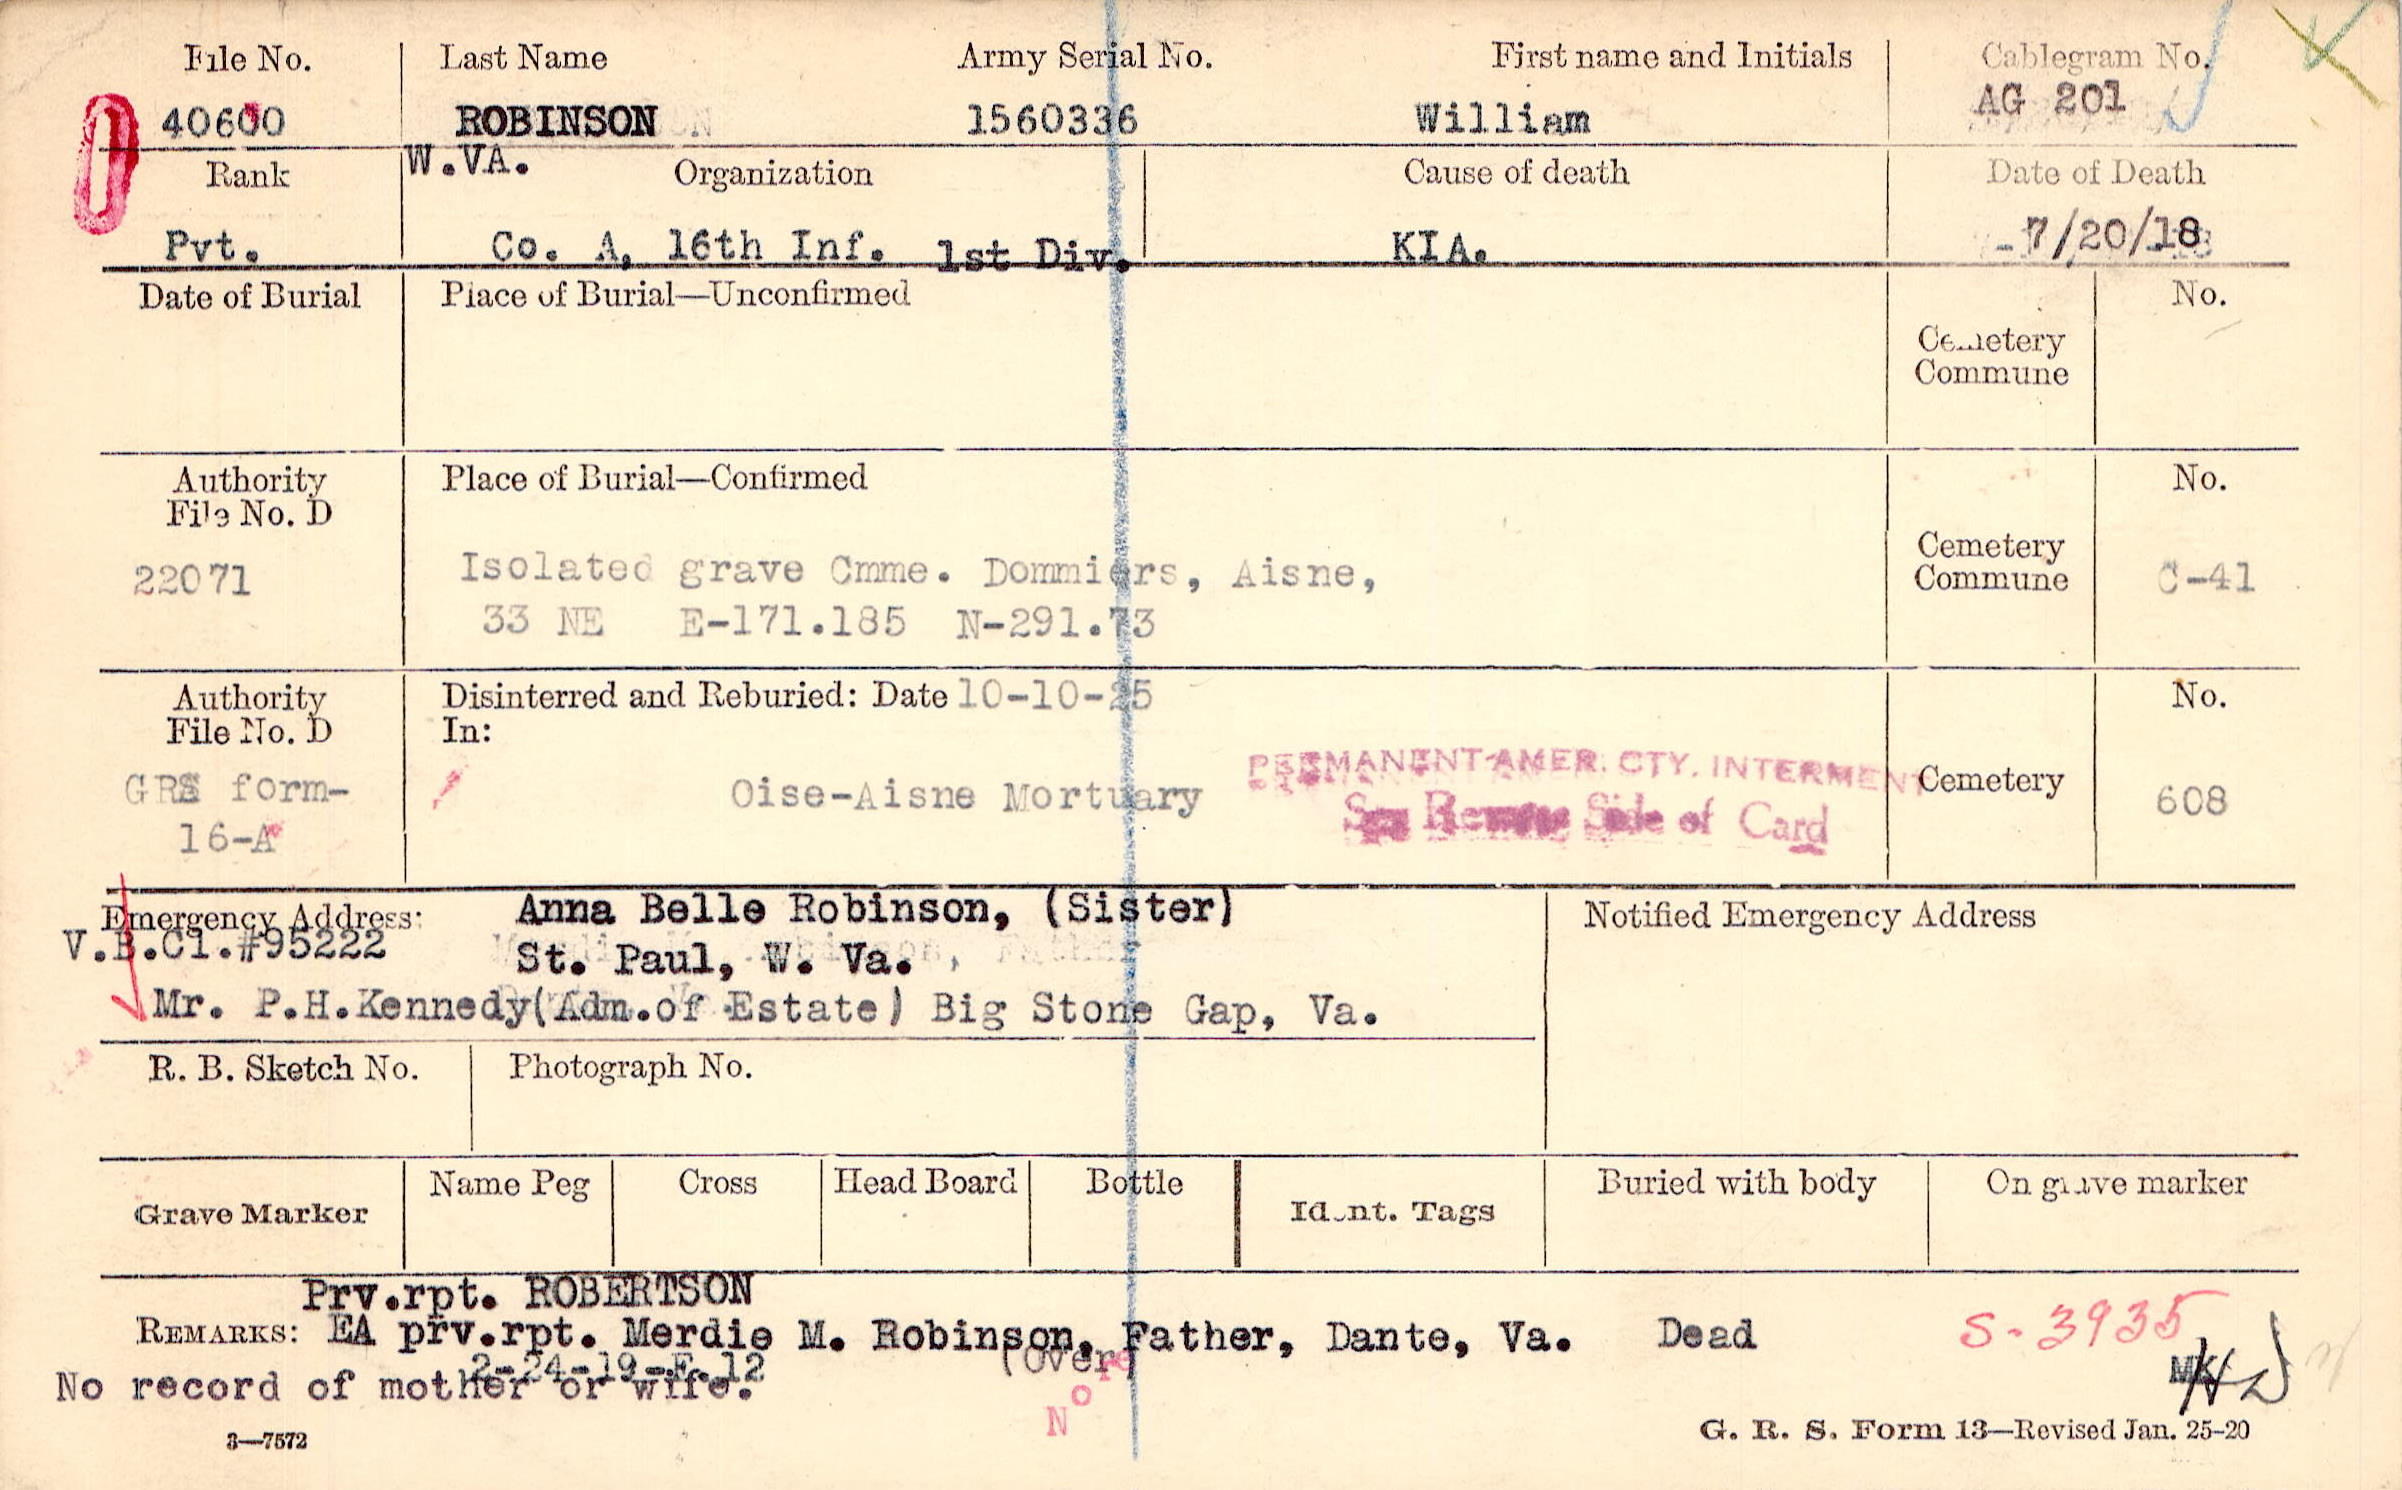 File No. Last Name Army Serial No. First name and Initials Cablegram No.
40600 ROBINSON 1560336 William AG 201
Rank W.VA. Organization Cause of death Date of Death
Pvt. Co. A, 16th Inf. 1st Div. KIA. 7/20/18
Date of Burial Place of Burial—Unconfirmed No.
Cemetery
Commune
Authority Place of Burial—Confirmed No.
File No. D
22071 Isolated grave Cmme. Dommiers, Aisne, Cemetery
Commune C-41
33 NE E-171.185 N-291.73
Authority Disinterred and Reburied: Date 10-10-25 No.
File No. D In:
PERMANENT AMER. CTY. INTERMENT
GRS form- Oise-Aisne Mortuary Cemetery 608
16-A See Reverse Side of Card
Emergency Address: Anna Belle Robinson, (Sister) Notified Emergency Address
V.B.Cl.#95222 St. Paul, W. Va.
Mr. P.H.Kennedy(Adm.of Estate) Big Stone Gap, Va.
R. B. Sketch No. Photograph No.
Grave Marker Name Peg Cross Head Board Bottle Ident. Tags Buried with body On grave marker
Prv.rpt. ROBERTSON
REMARKS: EA prv.rpt. Merdie M. Robinson, Father, Dante, Va. Dead S-3935
(Over)
2-24-19-F.12
No record of mother or wife.
3—7572 G. R. S. Form 13—Revised Jan. 25-20